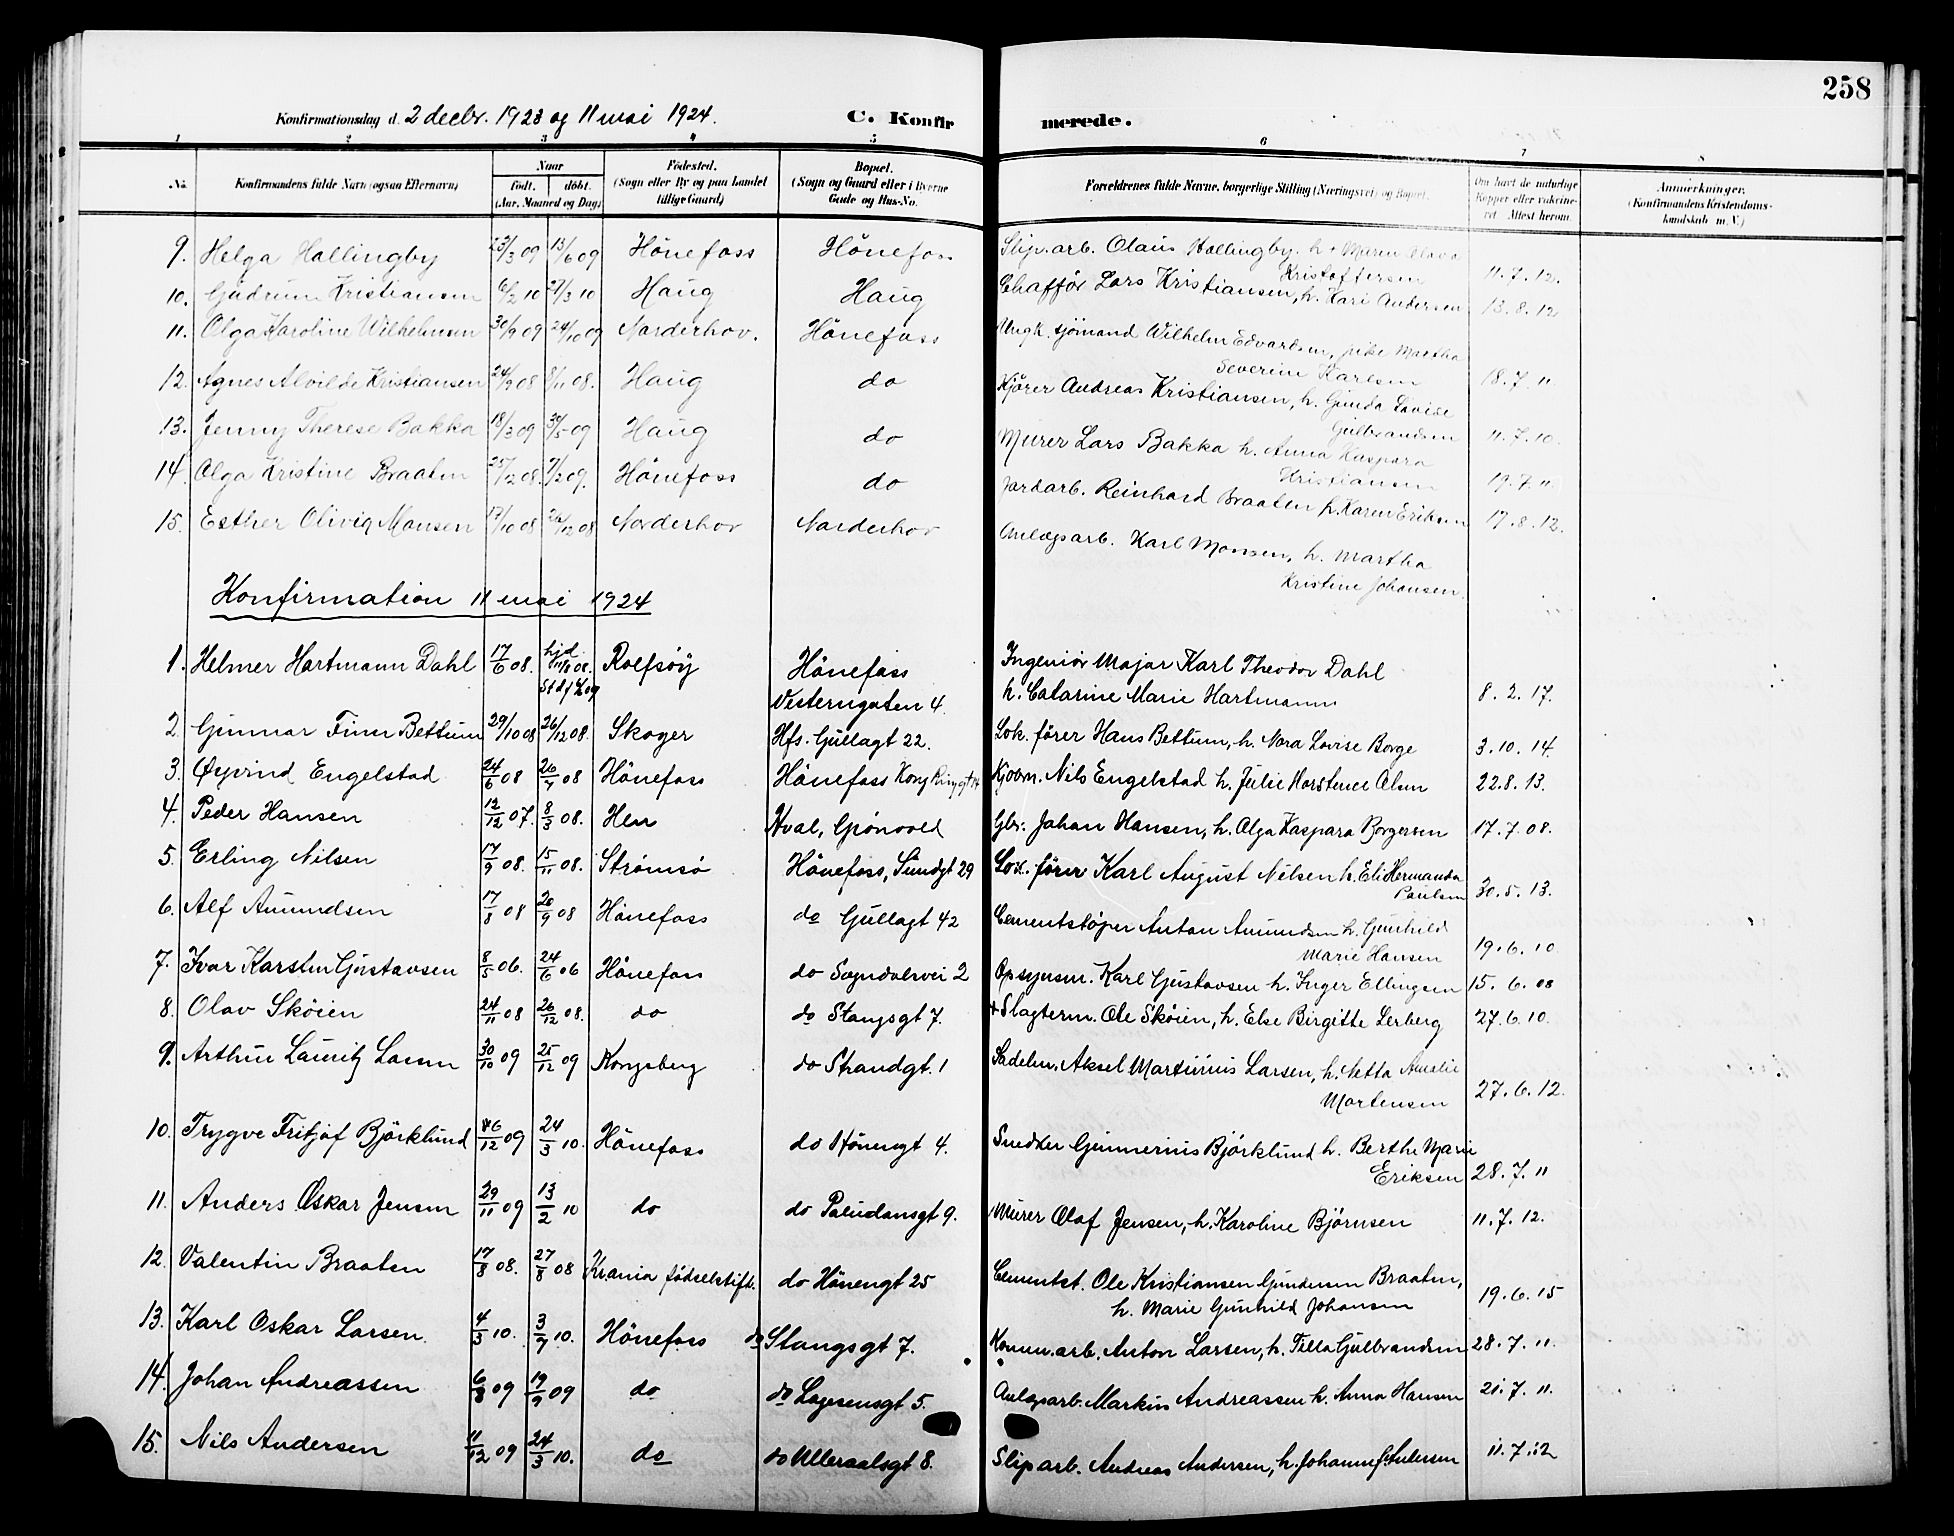 258
Konfirmationsdag d. 2 decbr. 1923 og 11 mai 1924. C. Konfirmerede.
1 2 3 4 5 6 7 8
No. Konfirmandens fulde Navn (ogsaa Efternavn) Naar født. døbt. (Aar, Maaned og Dag) Fødested. (Sogn eller By og paa Landet tillige Gaard) Bopæl. (Sogn og Gaard eller i Byerne Gade og Hus-No. Forældrenes fulde Navne, borgerlige Stilling (Næringsvei) og Bopæl. Om havt de naturlige Kopper eller vakcineret. Attest herom. Anmærkninger. (Konfirmandens Kristendomskundskab m. V.)
9. Helga Hallingby 23/3 09 13/6 09 Hönefoss Hönefoss Slip.arb. Olaus Hallingby. h. Maren Olava Kristoffersen 11.7.12.
10. Gudrun Kristiansen 6/2 10 27/3 10 Haug Haug Chafför Lars Kristiansen, h. Kari Andersen 13.8.12
11. Olga Karoline Wilhelmsen 30/9 09 24/10 09 Norderhov. Hönefoss Ungk. sjömand Wilhelm Edvardsen, pike Martha Severine Karlsen 18.7.11.
12. Agnes Alvilde Kristiansen 24/9 08 8/11 08. Haug do Kjörer Andreas Kristiansen, h. Gunda Lovise Gulbrandsen 11.7.10.
13. Jenny Therese Bakka 18/3 09 30/5 09 Haug do Murer Lars Bakka h. Anna Kaspara Kristiansen 19.7.11
14. Olga Kristine Braaten 25/12 08. 7/2 09. Hönefoss do Jordarb. Reinhard Braaten h. Karen Eriksen 17.8.12.
15. Esther Olivia Monsen 17/10 08 26/12 08 Norderhov Norderhov Anlægsarb. Karl Monsen, h. Martha Kristine Johansen.
Konfirmation 11 mai 1924
1. Helmer Hartmann Dahl 17/6 08. hjd. 11/9 08. Rolfsöy Hönefoss Vesterngaten 4. Ingeniör Major Karl Theodor Dahl h. Catarine Marie Hartmann 8.2.17.
2. Gunnar Finn Bettum 29/10 08 26/12 08. Skoger Hfs. Gullagt 22. Lok. förer Hans Bettum, h. Nora Lovise Borge 3.10.14.
3. Øyvind Engelstad 24/6 08 26/7 08 Hönefoss Hönefoss Kong Ringsgt 14 Kjøbm. Nils Engelstad h. Julie Horstence Olsen 22.8.13.
4. Peder Hansen 12/12 07. 8/3 08. Hen Hval, Grönvold Gbr. Johan Hansen, h. Olga Kaspara Borgersen 17.7.08.
5. Erling Nilsen 17/9 08. 15/11 08. Strömsö Hönefoss, Sundgt 29 Lok. förer Karl August Nilsen h. Eli Hermanda Paulsen 30.5.13.
6. Alf Amundsen 17/8 08 20/9 08 Hönefoss do Gullagt 42 Cementstöper Anton Amundsen h. Gunhild Marie Hansen 19.6.10
7. Ivar Karsten Gustavsen 8/5 06. 24/6 06 Hönefoss do Sogndalsvei 2 Opsynsm. Karl Gustavsen h. Inger Ellingsen 15.6.08
8. Olav Sköien 24/11 08 26/12 08. do do Stangsgt 7. Slagterm. Ole Sköien, h. Else Birgitte Lerberg 27.6.10.
9. Arthur Lauritz Larsen 30/10 09 25/12 09 Kongsberg do Strandgt. 1 Sadelm. Aksel Martinius Larsen, h. Netta Amalie Mortensen 27.6.12.
10. Trygve Fritjof Björklund 26/12 09 24/3 10. Hönefoss do Hönengt 4. Snedker Gunnerius Björklund h. Berthe Marie Eriksen 28.7.11
11. Anders Oskar Jensen 29/11 09 13/2 10 do do Paludansgt 9. Murer Olaf Jensen, h. Karoline Björnsen 11.7.12.
12. Valentin Braaten 17/8 08. 27/8 08 Krania födselstift. do Hönengt 25 Cementst. Ole Kristiansen Gundersen Braaten, h. Marie Gunhild Johansen 19.6.15
13. Karl Oskar Larsen. 4/5 10. 3/7 10. Hönefoss do Stangsgt 7. Komm.arb. Anton Larsen, h. Tilla Gulbrandsen 28.7.11.
14. Johan Andreassen 6/8 09 19/9 09 do do Lagesensgt 5. Anlægsarb. Markus Andreassen h. Anna Hansen 21.7.11.
15. Nils Andersen 11/12 09 24/3 10. do do Ulleraalsgt 8. Sliparb. Andreas Andersen, h. Johanne 11.7.12